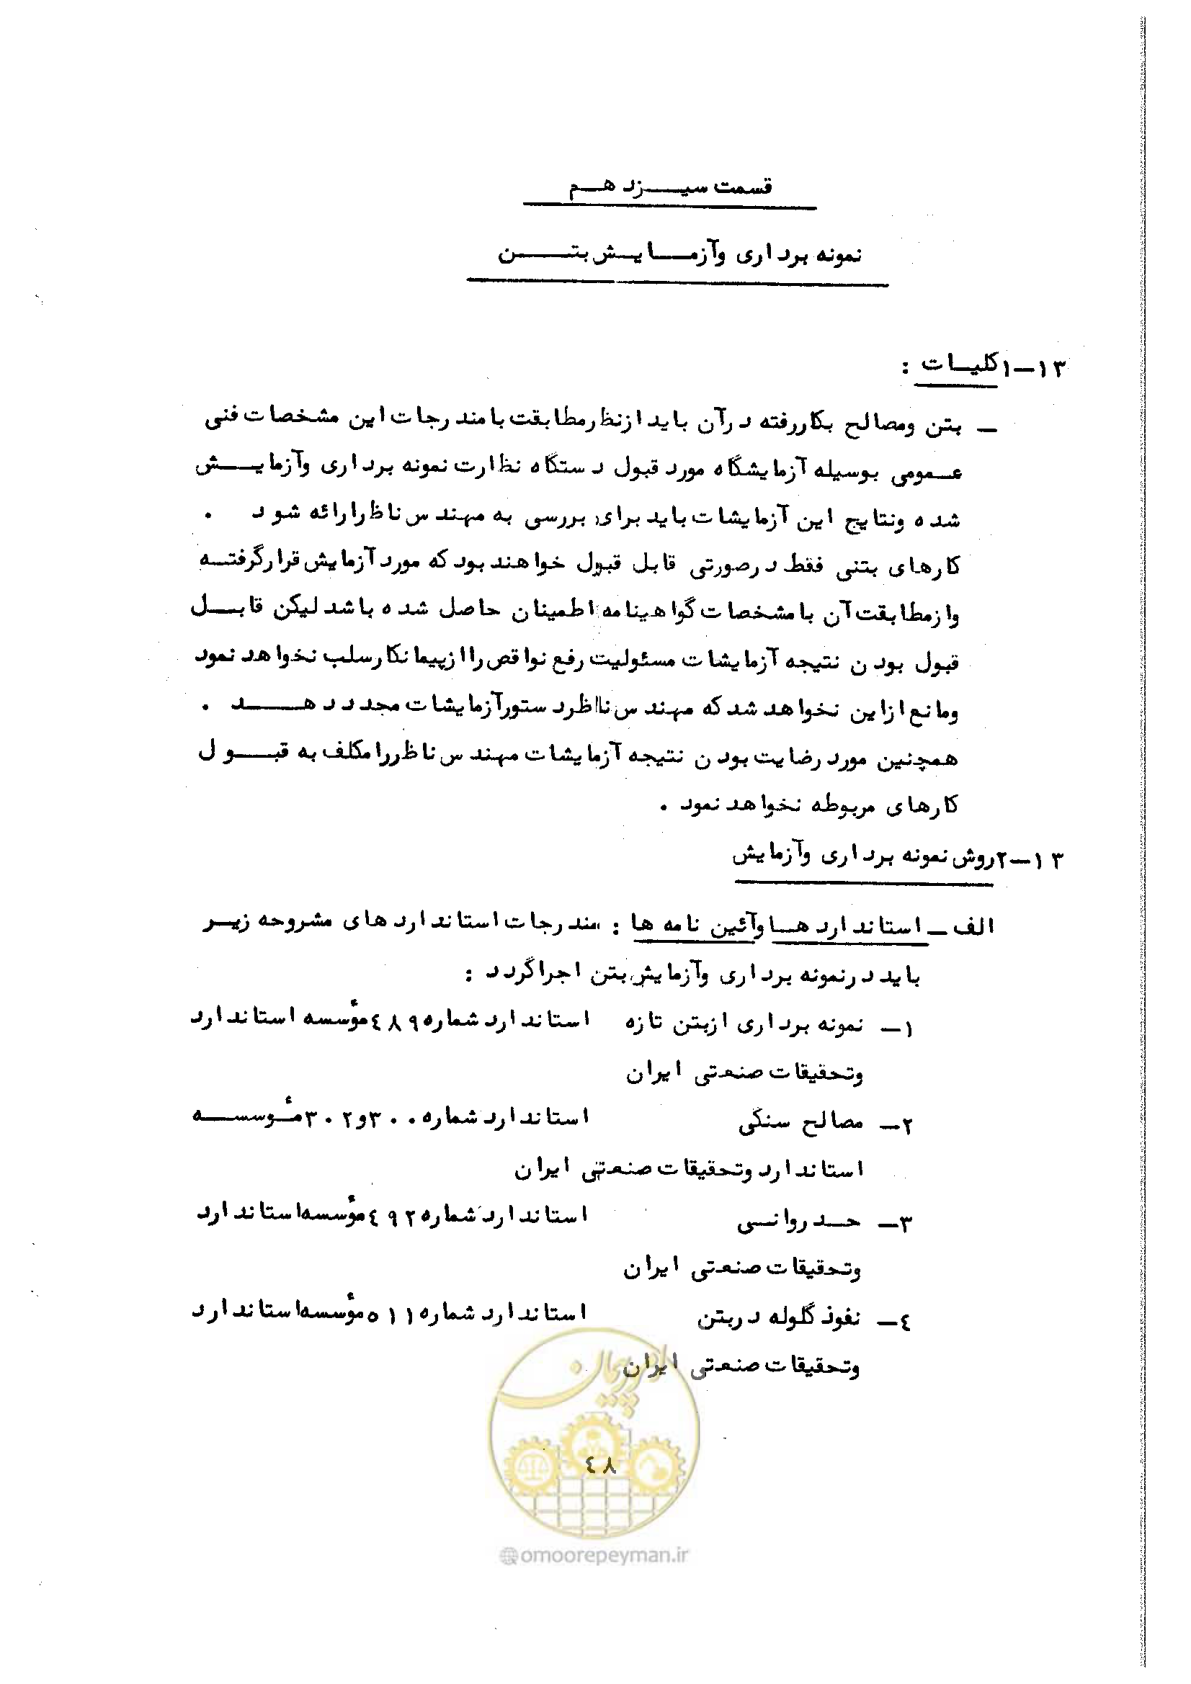 قسمت سیزدهم
نمونه برداری وآزمایش بتن
۱۳–۱ کلیات :
– بتن ومصالح بکاررفته درآن باید ازنظرمطابقت بامندرجات این مشخصات فنی
عمومی بوسیله آزمایشگاه مورد قبول دستگاه نظارت نمونه برداری وآزمایش
شده ونتایج این آزمایشات باید برای بررسی به مهندس ناظرارائه شود .
کارهای بتنی فقط درصورتی قابل قبول خواهند بود که مورد آزمایش قرارگرفته
وازمطابقت آن با مشخصات گواهینامه اطمینان حاصل شده باشد لیکن قابل
قبول بودن نتیجه آزمایشات مسئولیت رفع نواقص را ازپیمانکارسلب نخواهد نمود
ومانع ازاین نخواهد شد که مهندس ناظردستورآزمایشات مجدد دهد .
همچنین مورد رضایت بودن نتیجه آزمایشات مهندس ناظررامکلف به قبول
کارهای مربوطه نخواهد نمود .
۱۳–۲ روش نمونه برداری وآزمایش
الف – استانداردها وآئین نامه ها : مندرجات استانداردهای مشروحه زیر
باید درنمونه برداری وآزمایش بتن اجراگردد :
۱– نمونه برداری ازبتن تازه استاندارد شماره ٤۸۹ مؤسسه استاندارد
وتحقیقات صنعتی ایران
۲– مصالح سنگی استاندارد شماره ۳۰۰ و ۳۰۲ مؤسسه
استاندارد وتحقیقات صنعتی ایران
۳– حد روانی استاندارد شماره ٤۹۲ مؤسسه استاندارد
وتحقیقات صنعتی ایران
٤– نفوذ گلوله دربتن استاندارد شماره ۵۱۱ مؤسسه استاندارد
وتحقیقات صنعتی ایران
امور پیمان
٤۸
@omoorepeyman.ir